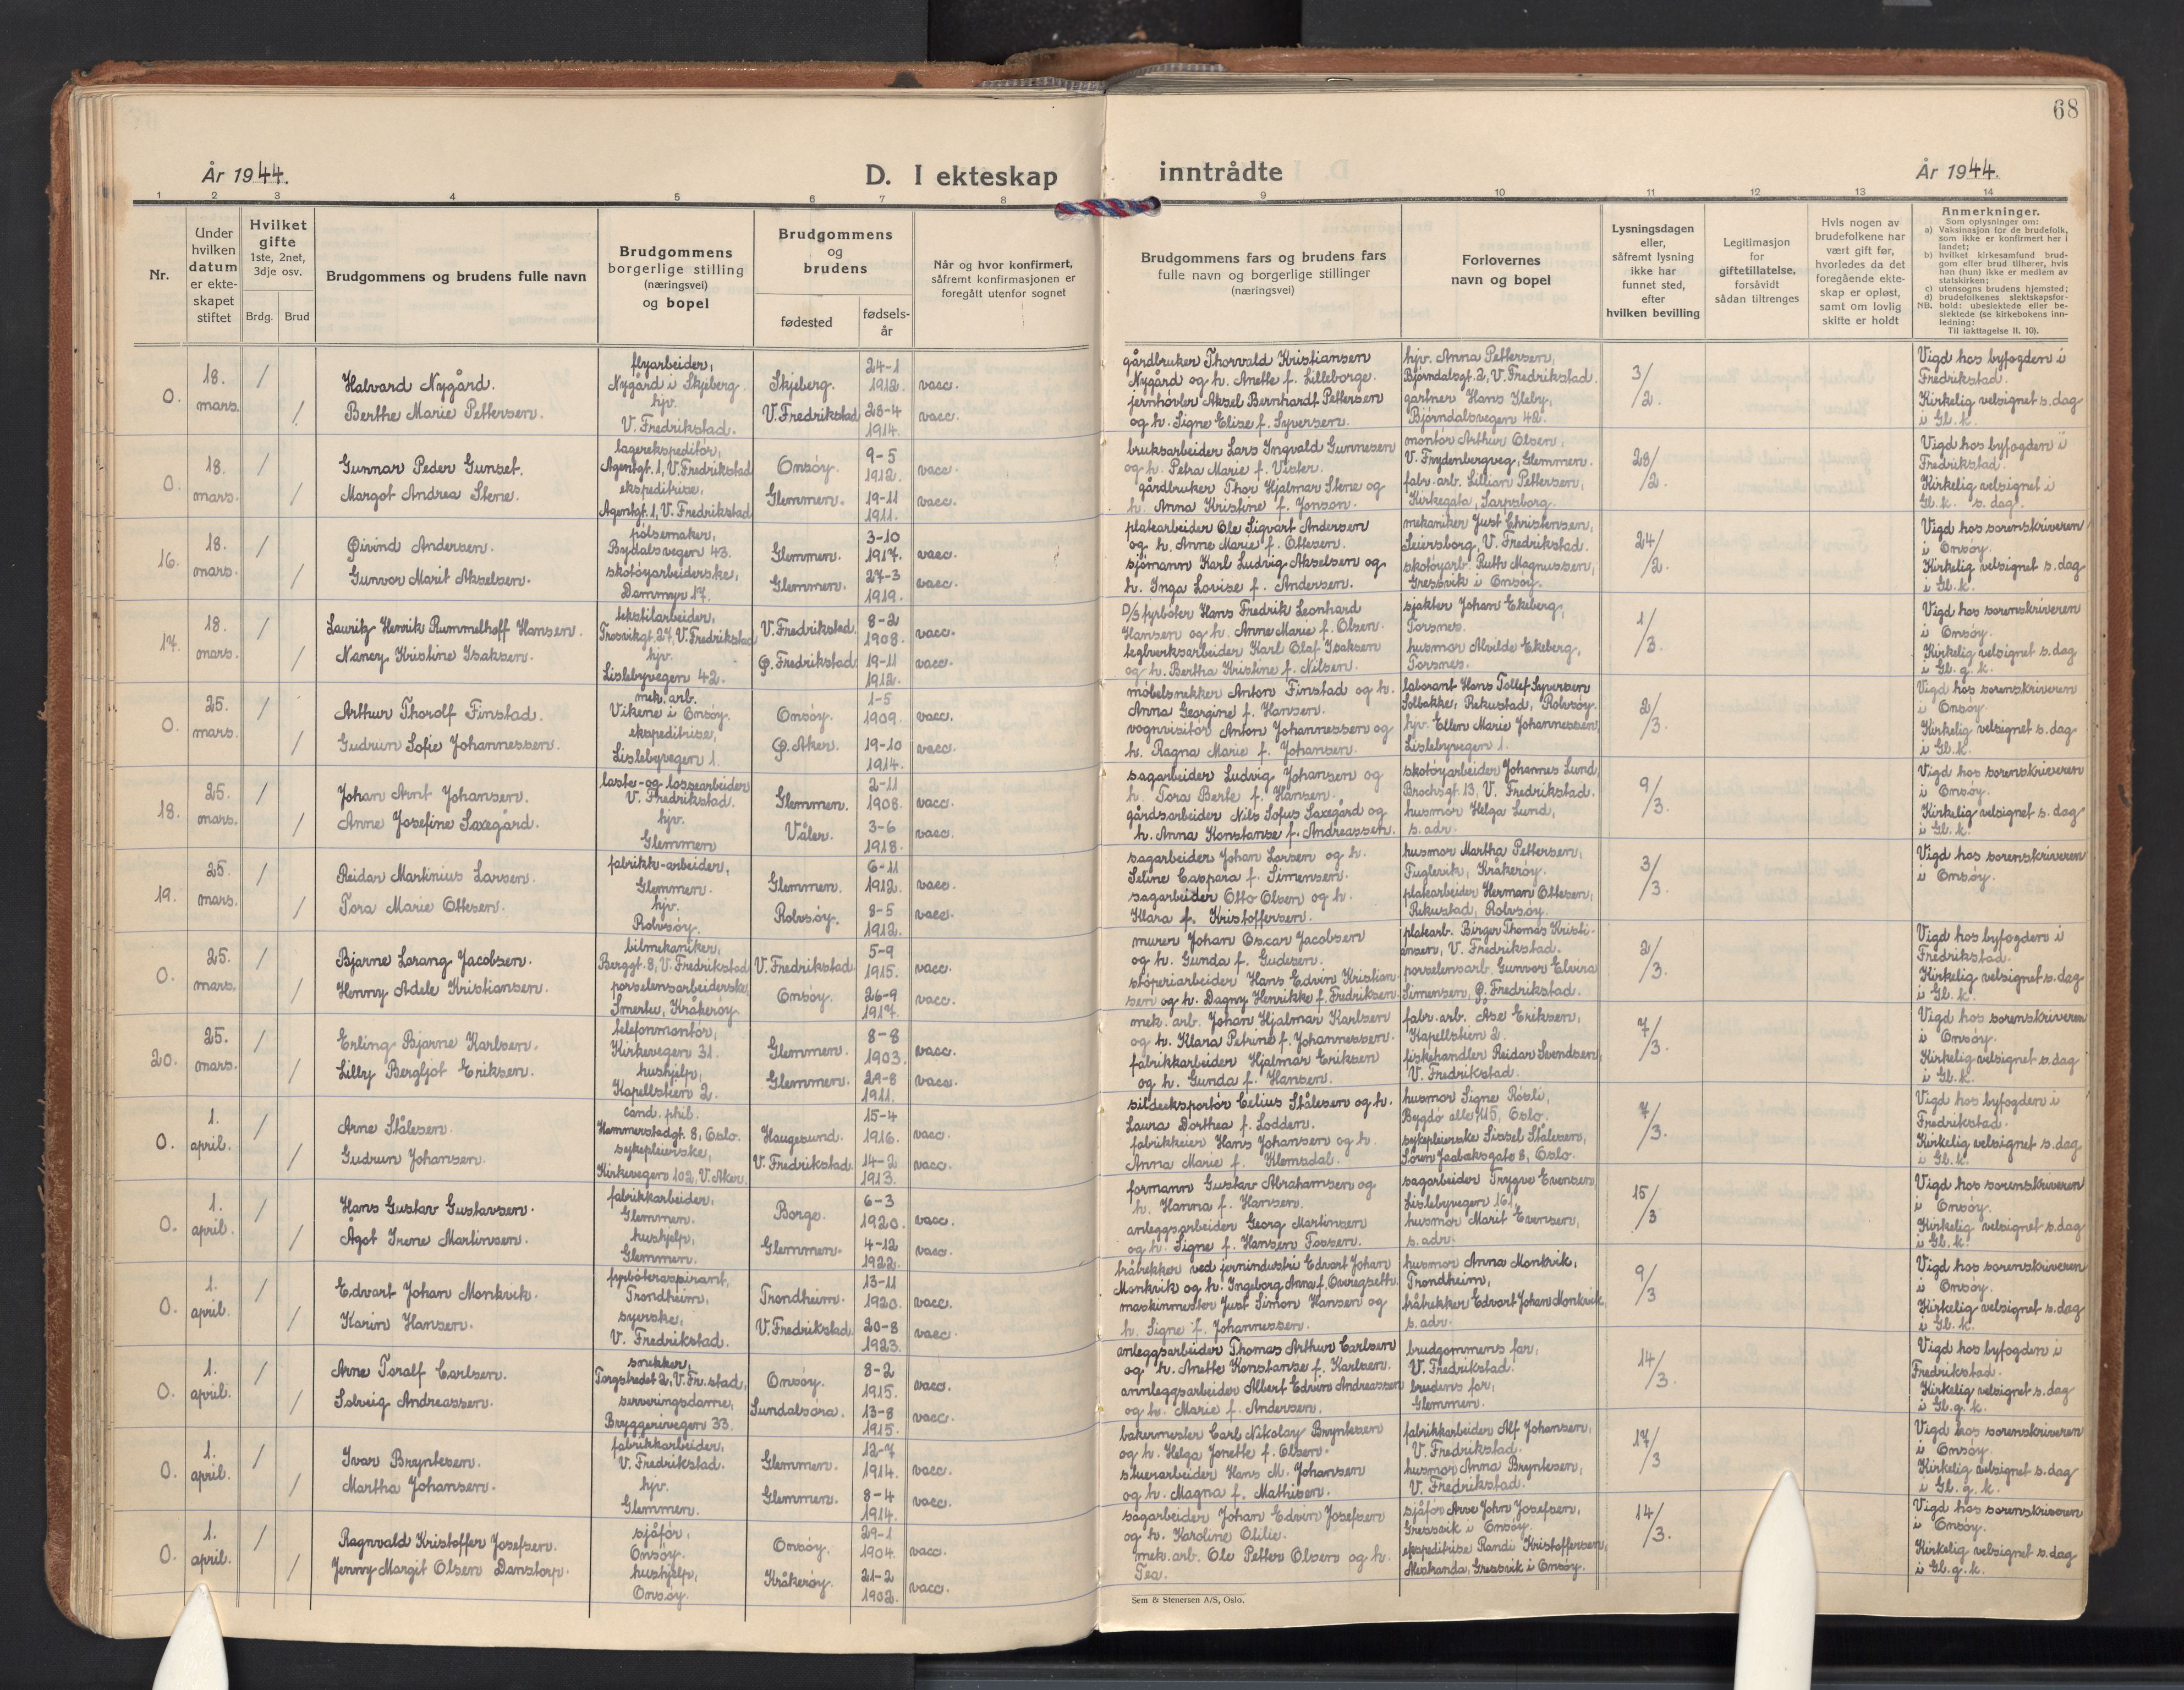 68
År 1944.
D. I ekteskap inntrådte
År 1944.
1 2 3 4 5 6 7 8 9 10 11 12 13 14
Nr.
Under hvilken datum er ekte-skapet stiftet
Hvilket gifte 1ste, 2net, 3dje osv.
Brdg. Brud
Brudgommens og brudens fulle navn
Brudgommens borgerlige stilling (næringsvei) og bopel
Brudgommens og brudens
fødested
fødsels-år
Når og hvor konfirmert, såfremt konfirmasjonen er foregått utenfor sognet
Brudgommens fars og brudens fars fulle navn og borgerlige stillinger (næringsvei)
Forlovernes navn og bopel
Lysningsdagen eller, såfremt lysning ikke har funnet sted, efter hvilken bevilling
Legitimasjon for giftetillatelse, forsåvidt sådan tiltrenges
Hvis nogen av brudefolkene har vært gift før, hvorledes da det foregående ekte-skap er opløst, samt om lovlig skifte er holdt
Anmerkninger.
Som oplysninger om:
a) Vaksinasjon for de brudefolk, som ikke er konfirmert her i landet;
b) hvilket kirkesamfund brud-gom eller brud tilhører, hvis han (hun) ikke er medlem av statskirken;
c) utensogns brudens hjemsted;
d) brudefolkenes slektskapsfor-hold: ubeslektede eller be-slektede (se kirkebokens inn-ledning:
NB. Til iakttagelse II. 10).
0. 18. mars. 1 1
Halvard Nygård.
Berthe Marie Pettersen.
flyarbeider,
Nygård i Skjeberg.
hjv.
V. Fredrikstad.
Skjeberg. 24-1 1912. vacc.
V. Fredrikstad 28-4 1914. vacc.
gårdbruker Thorvald Kristiansen
Nygård og h. Anette f. Lilleborge.
jernhøvler Aksel Bernhardt Pettersen
og h. Signe Elise f. Syversen.
hjv. Anna Pettersen,
Bjørndalsgt. 2, V. Fredrikstad.
gartner Hans Kleby,
Bjørndalsvegen 42.
3/2.
Vigd hos byfogden i
Fredrikstad.
Kirkelig velsignet s. dag
i Gl. k.
0. 18. mars. 1 1
Gunnar Peder Gunset.
Margot Andrea Stene.
lagerekspeditør,
Agentgt. 1, V. Fredrikstad
ekspeditrise,
Agentgt. 1, V. Fredrikstad
Onsøy. 9-5 1912. vacc.
Glemmen. 19-11 1911. vacc.
bruksarbeider Lars Ingvald Gunnesen
og h. Petra Marie f. Vister.
gårdbruker Thor Hjalmar Stene og
h. Anna Kristine f. Jonson.
montør Arthur Olsen,
V. Frydenbergveg, Glemmen.
fabr. arb. Lillian Pettersen,
Kirkegata, Sarpsborg.
28/2.
Vigd hos byfogden i
Fredrikstad.
Kirkelig velsignet i
Gl. k. s. dag.
16. 18. mars. 1 1
Øivind Andersen.
Gunvor Marit Akselsen.
pølsemaker,
Bydalsvegen 43.
skotøyarbeiderske,
Dammyr 17.
Glemmen. 3-10 1917. vacc.
Glemmen. 27-3 1919. vacc.
platearbeider Ole Sigvart Andersen
og h. Anne Marie f. Ottesen.
sjömann Karl Ludvig Akselsen og
h. Inga Lovise f. Andersen.
mekaniker Just Christensen,
Leiersborg, V. Fredrikstad.
skotøyarb. Ruth Magnussen,
Gressvik i Onsøy.
24/2.
Vigd hos sorenskriveren
i Onsøy.
Kirkelig velsignet s. dag
i Gl. k.
17. 18. mars. 1 1
Lauritz Henrik Rummelhoff Hansen.
Nancy Kristine Isaksen.
tekstilarbeider,
Trosvikgt. 27, V. Fredrikstad
hjv.
Lislebyvegen 42.
V. Fredrikstad. 8-2 1908. vacc.
Ø. Fredrikstad 19-11 1912. vacc.
D/S fyrbøter Hans Fredrik Leonhard
Hansen og h. Anne Marie f. Olsen.
teglverksarbeider Karl Olaf Isaksen
og h. Bertha Kristine f. Nilsen.
sjakter Johan Ekeberg,
Torsnes.
husmor Alvilde Ekeberg,
Torsnes.
1/3.
Vigd hos sorenskriveren
i Onsøy.
Kirkelig velsignet s. dag
i Gl. g. k.
0. 25. mars. 1 1
Arthur Thorolf Finstad.
Gudrun Sofie Johannessen.
mek. arb.
Vikene i Onsøy.
ekspeditrise,
Lislebyvegen 1.
Onsøy. 1-5 1909. vacc.
Ø. Aker. 19-10 1914. vacc.
møbelsnekker Anton Finstad og h.
Anna Georgine f. Hansen.
vognvisitør Anton Johannessen og
h. Ragna Marie f. Johansen.
laborant Hans Tollef Syversen
Solbakke, Rekustad, Rolvsøy.
hjv. Ellen Marie Johannessen,
Lislebyvegen 1.
2/3.
Vigd hos sorenskriveren
i Onsøy.
Kirkelig velsignet s. dag
i Gl. k.
18. 25. mars. 1 1
Johan Arnt Johansen.
Anne Josefine Saxegård.
laste- og lossearbeider
V. Fredrikstad.
hjv.
Glemmen
Glemmen. 2-11 1908. vacc.
Våler. 3-6 1918. vacc.
sagarbeider Ludvig Johansen og
h. Tora Berte f. Hansen.
gårdsarbeider Nils Sofus Saxegård og
h. Anna Konstanse f. Andreassen.
skotøyarbeider Johannes Lund,
Brochsgt. 13, V. Fredrikstad.
husmor Helga Lund,
s. adr.
9/3.
Vigd hos sorenskriveren
i Onsøy.
Kirkelig velsignet s. dag
i Gl. k.
19. 25. mars. 1 1
Reidar Martinius Larsen.
Tora Marie Ottesen.
fabrikk-arbeider,
Glemmen.
hjv.
Rolvsøy.
Glemmen. 6-11 1912. vacc.
Rolvsøy. 8-5 1912. vacc.
sagarbeider Johan Larsen og h.
Seline Caspara f. Simensen.
sagarbeider Otto Olsen og h.
Klara f. Kristoffersen.
husmor Martha Pettersen,
Fuglevik, Kråkerøy.
platearbeider Herman Ottesen,
Rekustad, Rolvsøy.
3/3.
Vigd hos sorenskriveren
i Onsøy.
0. 25. mars. 1 1
Bjarne Lorang Jacobsen.
Henny Adele Kristiansen.
bilmekaniker,
Berggt. 8, V. Fredrikstad
porselensarbeiderske,
Smertu, Kråkerøy
V. Fredrikstad 5-9 1915. vacc.
Onsøy. 26-9 1917. vacc.
murer Johan Oscar Jacobsen
og h. Gunda f. Gudesen.
støperiarbeider Hans Edvin Kristian-
sen og h. Dagny Henrikke f. Fredriksen.
platearb. Birger Thomas Kristi-
ansen, V. Fredrikstad.
porselensarb. Gunvor Elvira
Simensen, Ø. Fredrikstad.
2/3.
Vigd hos byfogden i
Fredrikstad.
Kirkelig velsignet s. dag
i Gl. k.
20. 25. mars. 1 1
Erling Bjarne Karlsen.
Lilly Bergljot Eriksen.
telefonmontør,
Kirkevegen 31.
hushjelp,
Kapellstien 2.
Glemmen. 8-8 1903. vacc.
Glemmen. 29-8 1911. vacc.
mek. arb. Johan Hjalmar Karlsen
og h. Klara Petrine f. Johannessen.
fabrikkarbeider Hjalmar Eriksen
og h. Gunda f. Hansen.
fabr. arb. Åse Eriksen,
Kapellstien 2.
fiskehandler Reidar Svendsen,
V. Fredrikstad.
7/3.
Vigd hos sorenskriveren
i Onsøy.
Kirkelig velsignet s. dag
i Gl. k.
0. 1. april. 1 1
Arne Stålesen.
Gudrun Johansen.
cand. phil.
Hammerstadgt. 8, Oslo.
sykepleierske,
Kirkevegen 102, V. Aker.
Haugesund. 15-4 1916. vacc.
V. Fredrikstad 14-2 1913. vacc.
sildeeksportør Celius Stålesen og h.
Laura Dorthea f. Lodden.
fabrikkeier Hans Johansen og h.
Anna Marie f. Klemsdal.
husmor Signe Røsli,
Bygdø alle 115, Oslo.
sykepleierske Sissel Stålesen,
Søren Jaabæksgate 8, Oslo.
7/3.
Vigd hos byfogden i
Fredrikstad.
Kirkelig velsignet s. dag
i Gl. k.
0. 1. april. 1 1
Hans Gustav Gustavsen.
Ågot Irene Martinsen.
fabrikkarbeider,
Glemmen.
hushjelp,
Glemmen.
Borge. 6-3 1920. vacc.
Glemmen. 4-12 1922. vacc.
formann Gustav Abrahamsen og
h. Hanna f. Hansen.
anleggsarbeider Georg Martinsen
og h. Signe f. Hansen Fossen.
sagarbeider Trygve Evensen
Lislebyvegen 161,
husmor Marit Evensen,
s. adr.
15/3
Vigd hos sorenskriveren
i Onsøy.
Kirkelig velsignet s. dag
i Gl. k.
0. 1. april. 1 1
Edvart Johan Monkvik.
Karin Hansen.
fyrbøteraspirant,
Trondheim,
syerske,
V. Fredrikstad.
Trondheim. 13-11 1920. vacc.
V. Fredrikstad 20-8 1923. vacc.
tråtrekker ved jernindustri Edvart Johan
Monkvik og h. Ingeborg Anna f. Overegseth.
maskinmester Just Simon Hansen og
h. Signe f. Johannessen.
husmor Anna Monkvik,
Trondheim,
tråtrekker Edvart Johan Monkvik,
s. adr.
9/3
Vigd hos sorenskriveren
i Onsøy.
Kirkelig velsignet s. dag
i Gl. k.
0. 1. april. 1 1
Arne Toralf Carlsen.
Solveig Andreassen.
snekker,
Torgstredet 2, V. Fr. stad,
serveringsdame,
Bryggerivegen 33.
Onsøy. 8-2 1915. vacc.
Sundalsøra. 13-8 1915. vacc.
anleggsarbeider Thomas Arthur Carlsen
og h. Anette Konstanse f. Karlsen.
annleggsarbeider Albert Edvin Andreassen
og h. Marie f. Andersen.
brudgommens far,
V. Fredrikstad.
brudens far,
Glemmen.
14/3.
Vigd hos byfogden i
Fredrikstad.
Kirkelig velsignet s. dag
i Gl. g. k.
0. 1. april. 1 1
Ivar Bryntesen.
Martha Johansen.
fabrikkarbeider,
V. Fredrikstad.
hjv.
Glemmen.
Glemmen. 12-7 1914. vacc.
Glemmen. 8-4 1914. vacc.
bakermester Carl Nikolay Bryntesen
og h. Helga Jonette f. Olsen.
stuerarbeider Hans M. Johansen
og h. Magna f. Mathisen.
fabrikkarbeider Alf Johansen,
V. Fredrikstad.
husmor Anna Bryntesen,
V. Fredrikstad.
17/3
Vigd hos sorenskriveren
i Onsøy.
Kirkelig velsignet s. dag
i Gl. g. k.
0. 1. april. 1 1
Ragnvald Kristoffer Josefsen.
Jenny Margit Olsen Danstorp.
sjåfør,
Onsøy.
hushjelp,
Onsøy.
Onsøy. 29-1 1904. vacc.
Kråkerøy. 21-2 1902. vacc.
sagarbeider Johan Edvin Josefsen
og h. Karoline Otilie.
mek. arb. Ole Petter Olsen og h.
Tea.
sjåfør Arve John Josefsen,
Gressvik i Onsøy.
ekspeditrise Randi Kristoffersen,
Alestranda, Gressvik i Onsøy.
14/3.
Vigd hos sorenskriveren
i Onsøy.
Kirkelig velsignet s. dag
i Gl. g. k.
Sem & Stenersen A/S, Oslo.